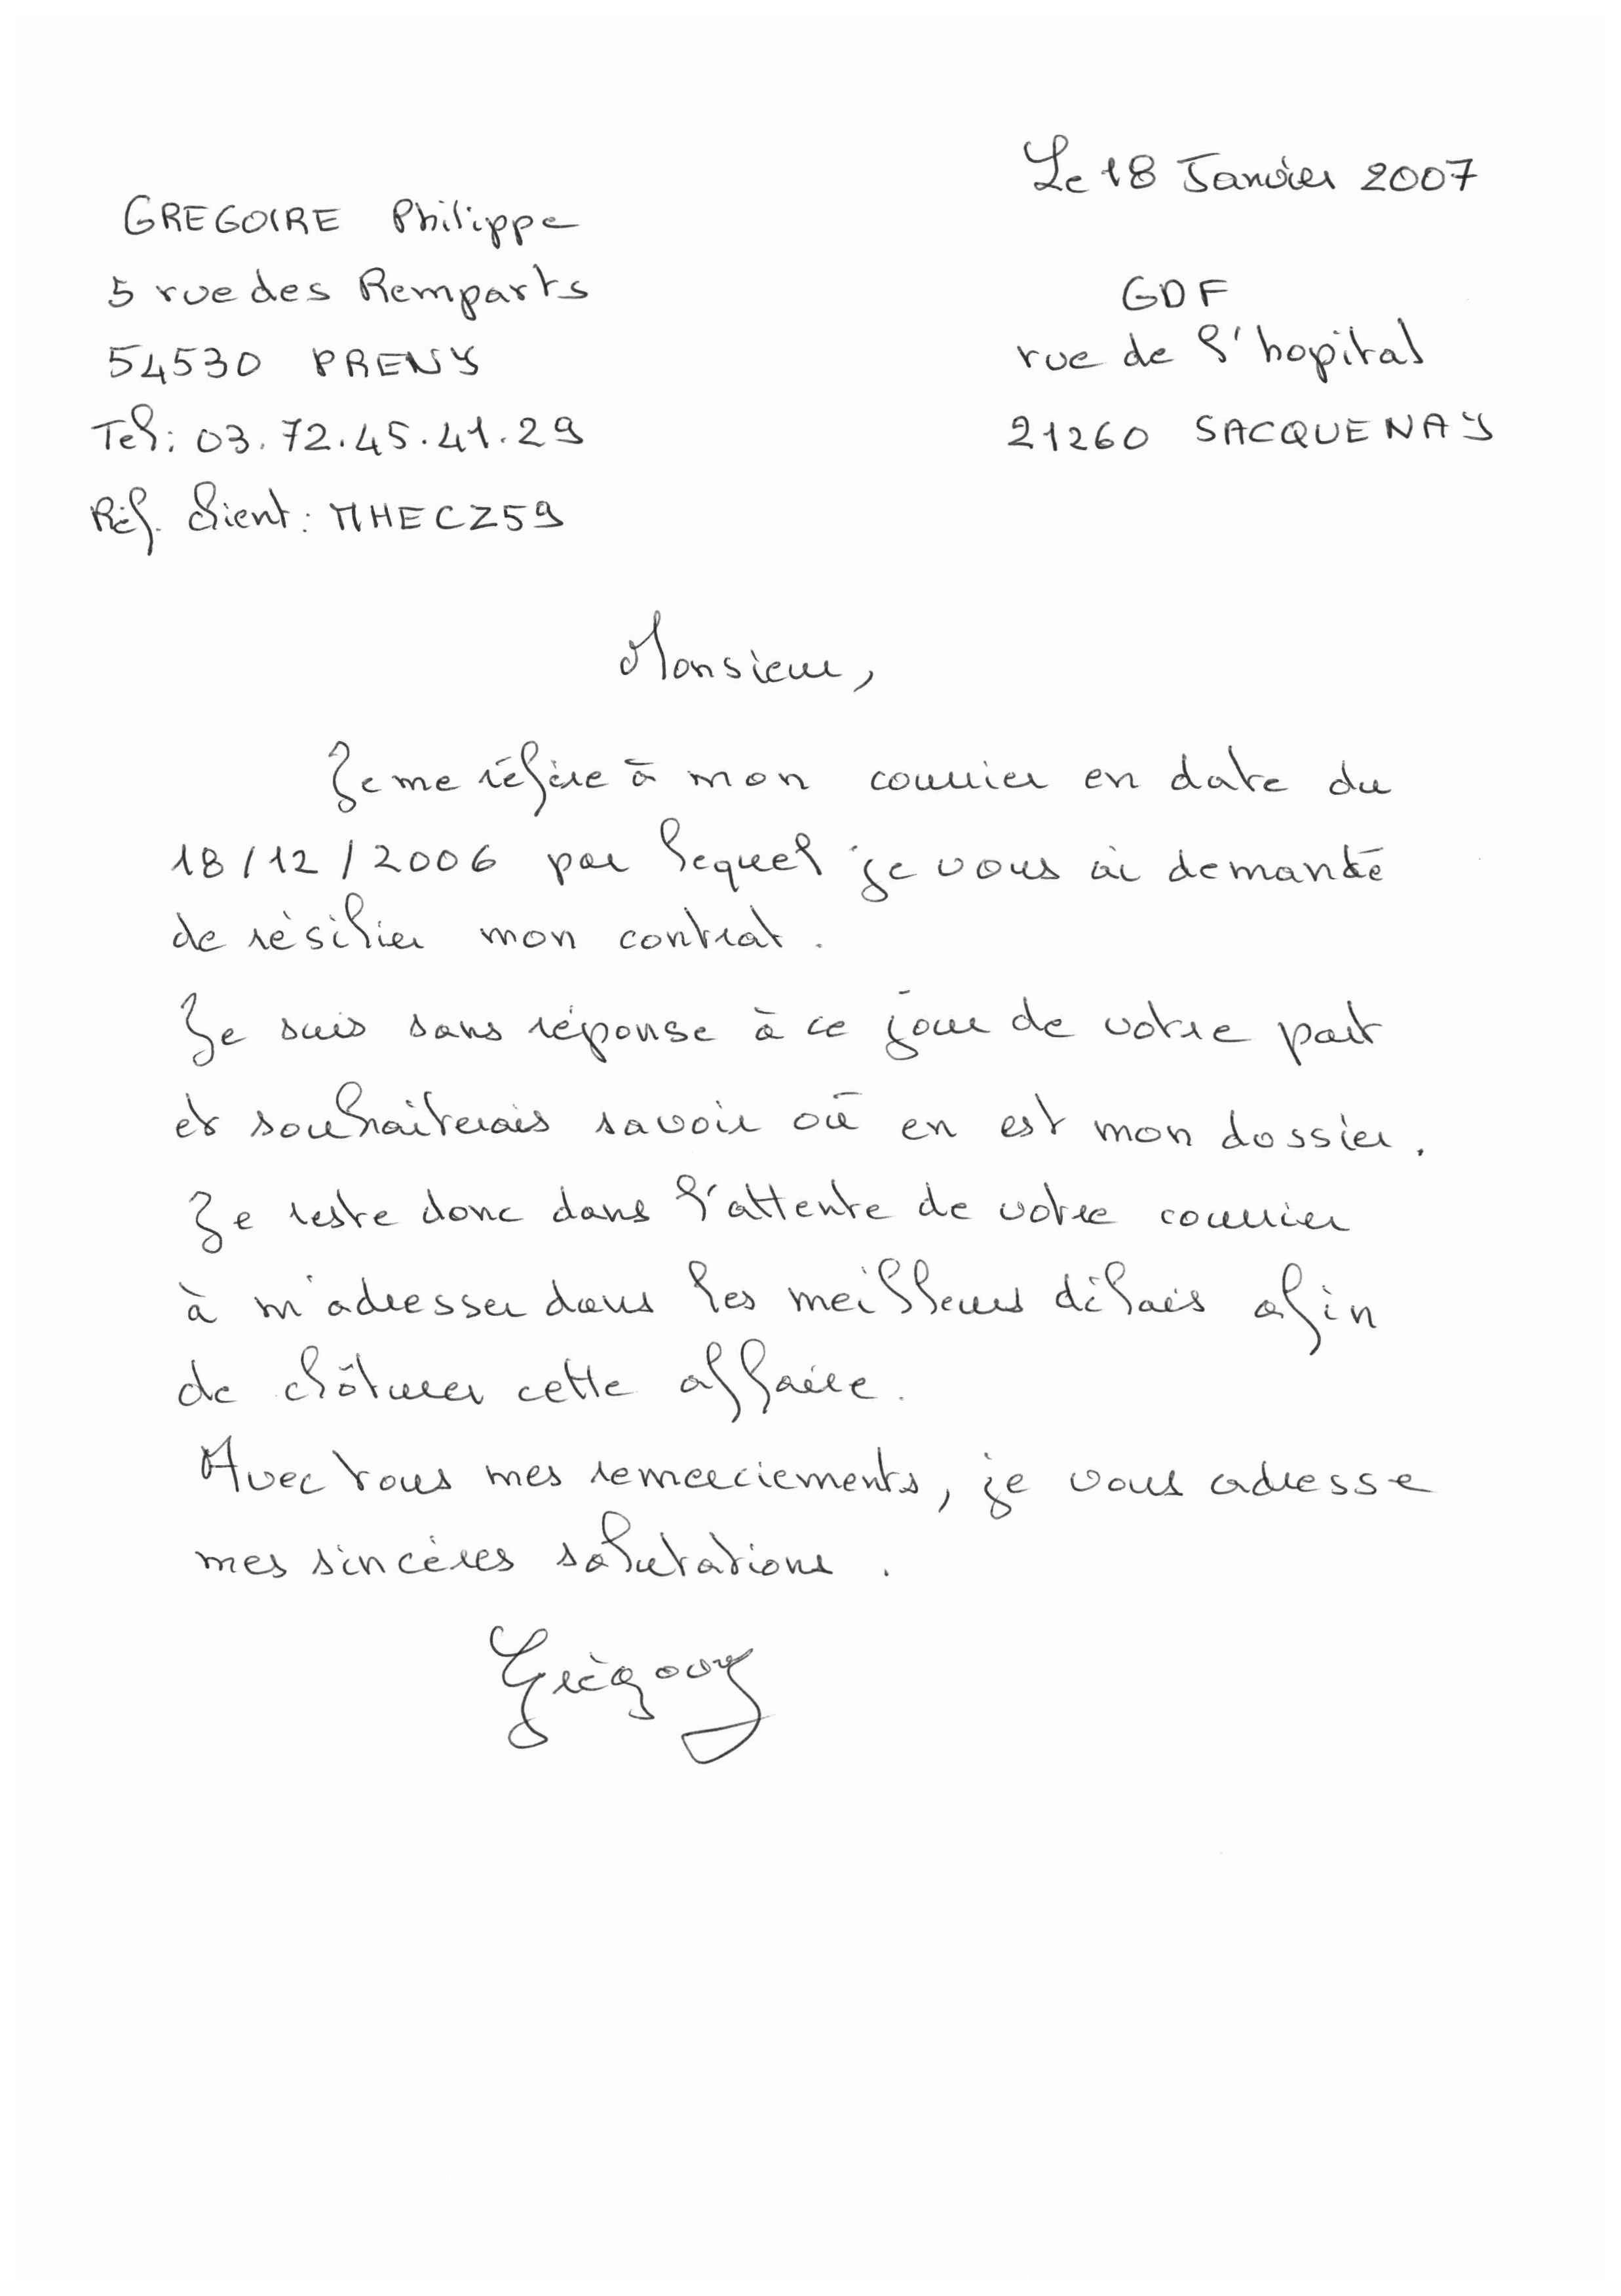 Le 18 Janvier 2007
GREGOIRE Philippe
5 rue des Remparts
54530 PRENY
Tel: 03.72.45.41.29
Réf. Client: MHECZ59
GDF
rue de l'hopital
21260 SACQUENAY
Monsieur,
Je me réfère à mon courrier en date du
18/12/2006 par lequel je vous ai demandé
de résilier mon contrat.
Je suis sans réponse à ce jour de votre part
et souhaiterais savoir où en est mon dossier.
Je reste donc dans l'attente de votre courrier
à m'adresser dans les meilleurs délais afin
de clôturer cette affaire.
Avec tous mes remerciements, je vous adresse
mes sincères salutations.